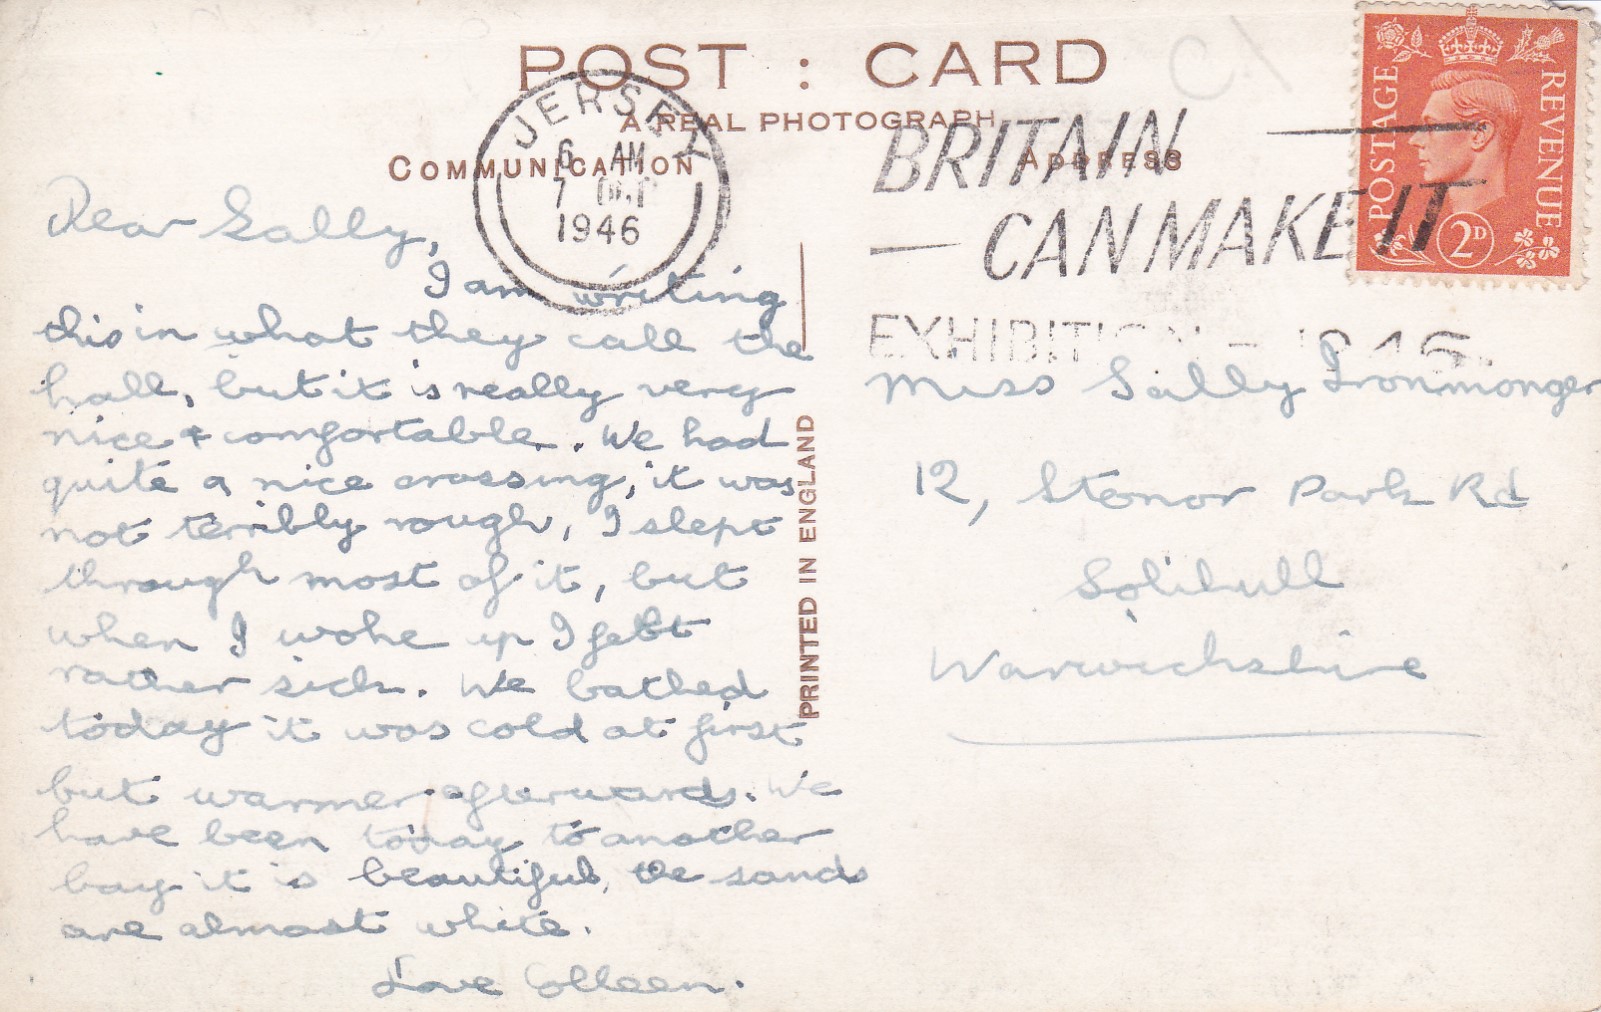 POST : CARD
A REAL PHOTOGRAPH
COMMUNICATION
ADDRESS
JERSEY
6 AM
7
1946
BRITAIN
CAN MAKE IT
EXHIBITION - 1946.
POSTAGE
REVENUE
2D
Dear Sally,
I am writing
this in what they call the
hall, but it is really very
nice + comfortable. We had
quite a nice crossing, it was
not terribly rough, I slept
through most of it, but
when I woke up I felt
rather sick. We bathed
today it was cold at first
but warmer afterwards. We
have been today to another
bay it is beautiful, the sands
are almost white.
Love Colleen.
PRINTED IN ENGLAND
Miss Sally Ironmonger
12, Stonor Park Rd
Solihull
Warwickshire